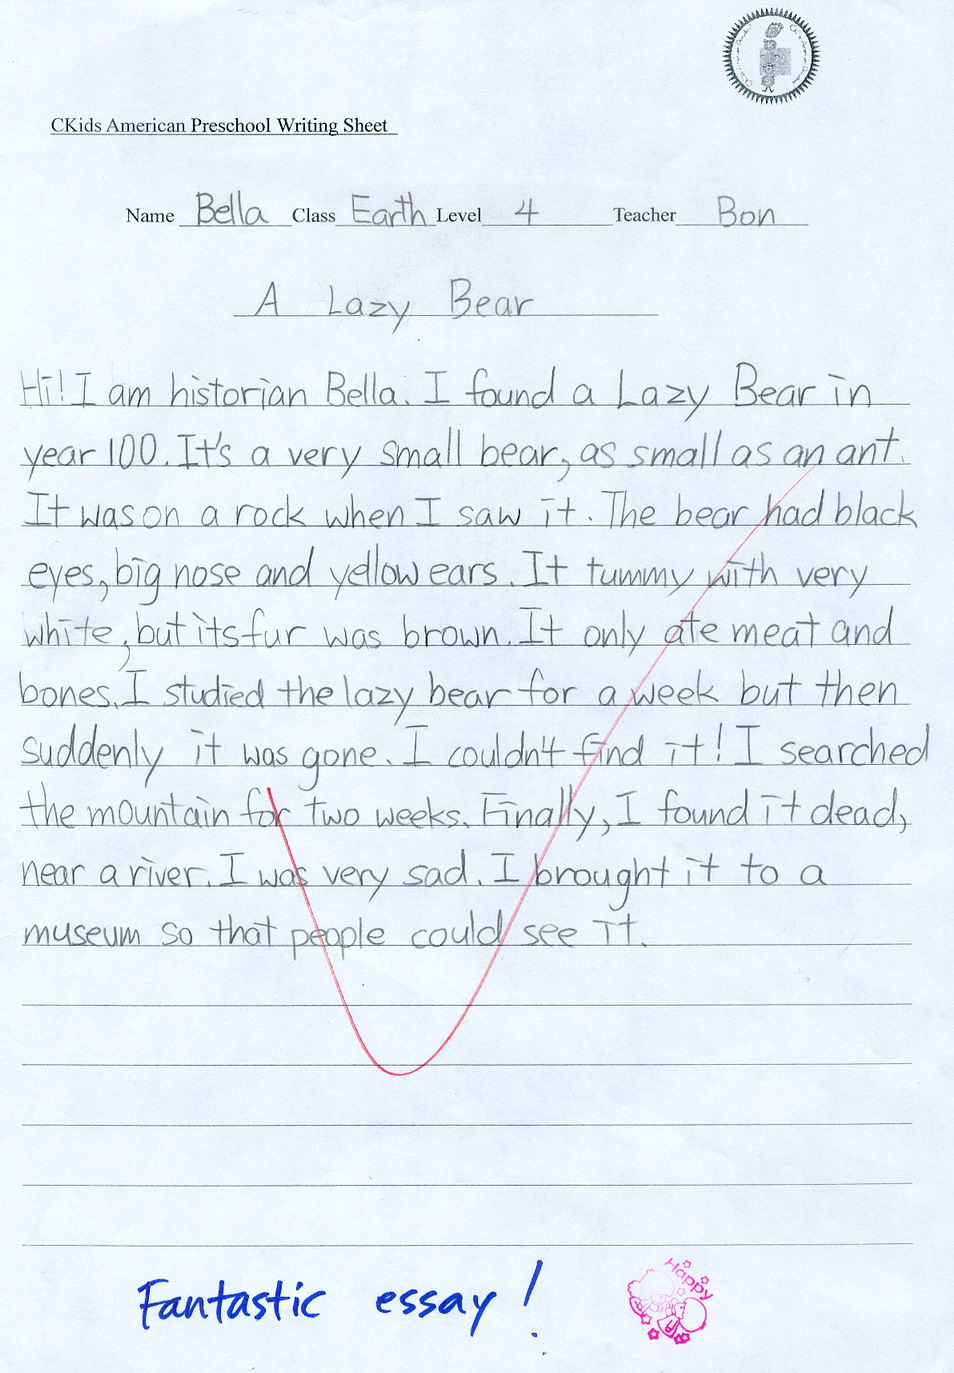 CKids American Preschool Writing Sheet
Name Bella Class Earth Level 4 Teacher Bon
A Lazy Bear
Hi! I am historian Bella. I found a Lazy Bear in
year 100. It's a very small bear, as small as an ant.
It was on a rock when I saw it. The bear had black
eyes, big nose and yellow ears. It tummy with very
white, but its fur was brown. It only ate meat and
bones. I studied the lazy bear for a week but then
suddenly it was gone. I couldn't find it! I searched
the mountain for two weeks. Finally, I found it dead,
near a river. I was very sad. I brought it to a
museum so that people could see it.
Fantastic essay!
Happy